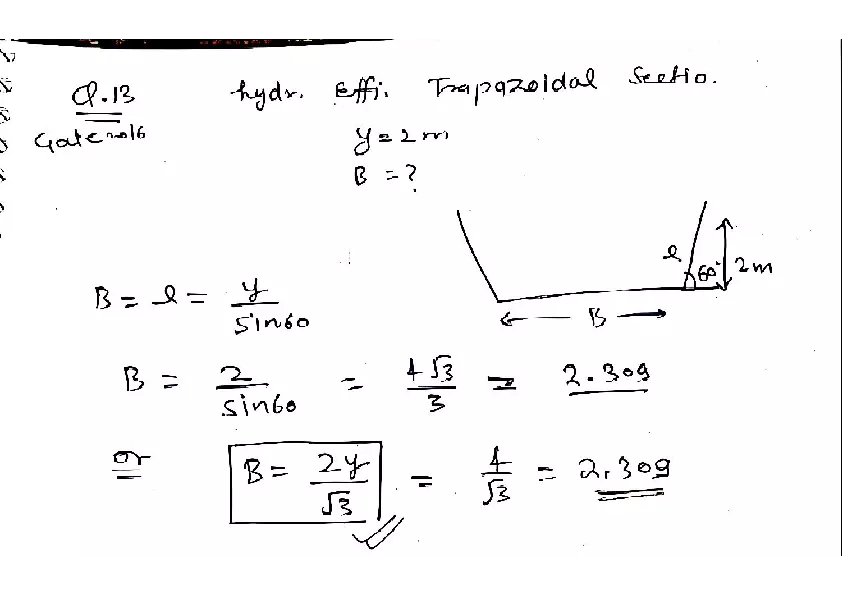 Q.13 hydr. Effi. Trapazoidal Sectio.
Gate 2016 y = 2 m
B = ?
l 60° 2m
B
B = l = y / sin60
B = 2 / sin60 = 4√3 / 3 = 2.309
or B = 2y / √3 = 4 / √3 = 2.309